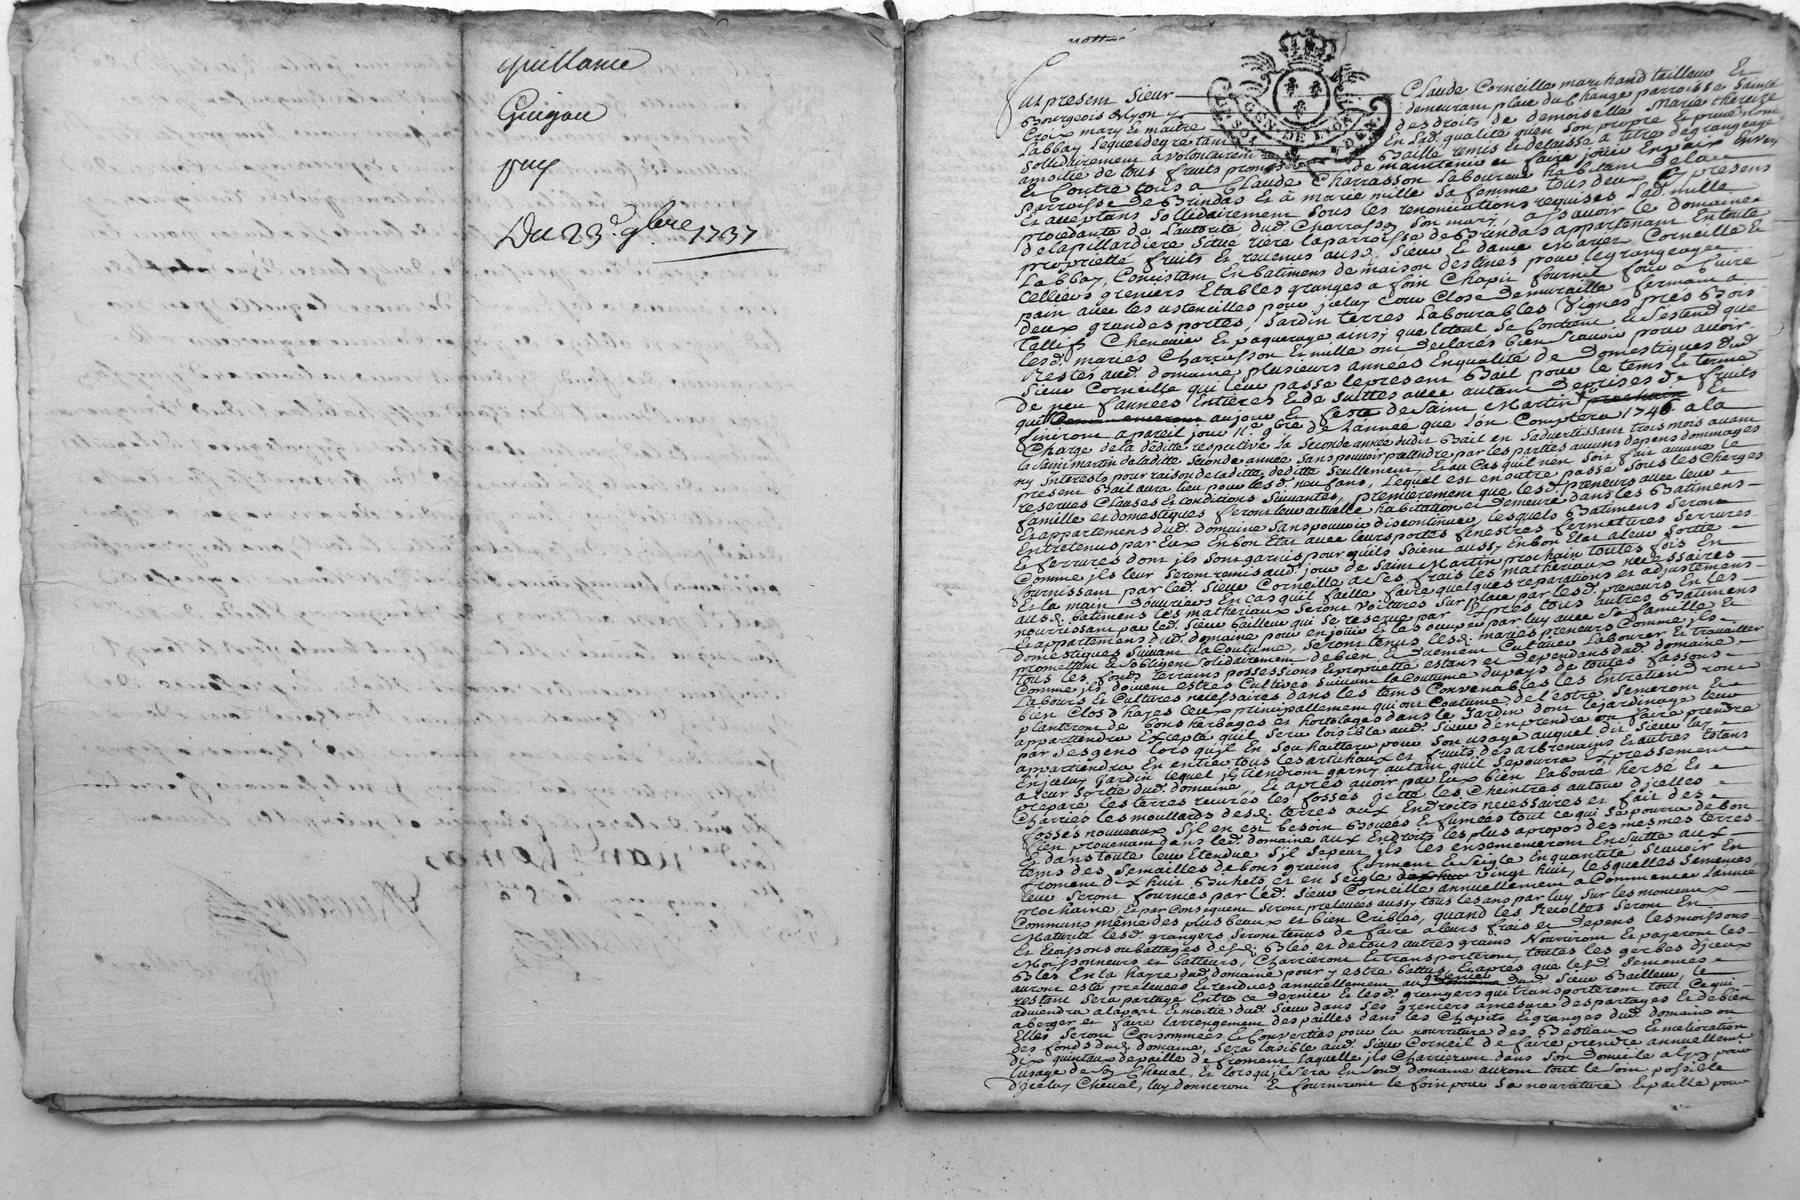 quittance
Guigou
puy
Du 23e. 9bre 1737
Fut present Sieur Claude Corneille marchand tailleur Et
Bourgeois de Lyon y demeurant place du Change parroisse Sainte
Croix mary et maitre des droits de demoiselle Marie thereize
Labbay Lequel de gré tant En Lad. qualité qu'en son propre et privé nom
Sollidairement a volontairem baillé remis et delaissé a titre de grangeage
amoitié de tous fruits promis de maintenir et faire jouir En paix Envers
Et Contre tous a Claude Charrasson Laboureur habitant de la
parroisse de Brindas et à marie mille Sa femme tous deux cy presens
Et acceptans Sollidairement Sous les renonciations requises Lad. mille
procedante de L'autorité dud. Charrasson Son mary, assavoir le domaine
de la pillardiere Situé riere la parroisse de Brindas appartenant En toute
proprietté fruits et revenus aud. Sieur Et dame mariez Corneille Et
Labbay, Consistant En batimens de maison destinés pour le grangeage
Celliers greniers Etables granges a foin Chapit fournil four a Cuire
pain avec les ustencilles pour jceluy Cour Close de muraille fermant a
deux grandes portes, Jardin terres Labourables Vignes prés Bois
Taillif Chenevier Et paquerage ainsy que letout Se Contient Et S'estend que
lesd. mariés Charrasson Et mille ont declarés bien Sçavoir pour avoir
Restés aud. domaine plusieurs années En qualité de Domestiques dud.
Sieur Corneille qui leur passe le present Bail pour le tems Et terme
de neuf années Entieres Et de Suittes avec autant de prises de fruits
qui Commenceront aujour Et feste de Saint Martin prochain Et
finiront a pareil jour 11e 9bre de L'année que l'on Comptera 1746 a la
Charge de la dédite respective la Seconde année dudit Bail en S'advertissant trois mois avant
la Saint martin de laditte Seconde année Sans pouvoir prettendre par les parties aucuns depens dommages
ny Interests pour raison de laditte deditte Seullement, Et au Cas qu'il n'en Soit fait aucune le
present Bail aura lieu pour lesd. neuf ans, Lequel est en outre passé Sous les Charges
reserves Clauses Et conditions Suivantes, premierement que lesd. preneurs avec leur
famille et domestiques feront leur actuelle habitation et Demeure dans les Batimens
Et appartemens dud. domaine Sans pouvoir discontinuer, lesquels Batimens Seront
Entretenus par Eux En bon Etat avec leurs portes fenestres fermettures Serrures
Et ferrures dont jls Sont garnis pour qu'ils Soient aussy En bon Etat a leur Sortie
Comme jls leur Seront remis aud. jour de Saint Martin prochain toutes fois En
fournissant par led. Sieur Corneille a Ses frais les matheriaux necessaires
Et la main D'ouvriers En cas qu'il faille faire quelques reparations et adjustemens
ausd. batimens les matheriaux Seront Voiturés Sur place par lesd. preneurs En les
nourrissant par led. Sieur bailleur qui Se reserve par Exprés tous autres Batimens
Et appartemens dud. domaine pour en jouir Et les occuper par luy avec Sa famille Et
domestiques Suivant la Coutume, Seront tenus lesd. mariés preneurs Comme jls
promettent Et S'obligent Solidairement de bien Et Duement Cultiver Labourer Et travailler
tous les fonds terrains possessions Et proprietté estans et dependans dud. domaine
Comme jls doivent estres Cultivés Suivant la Coutume du pays de toutes fassons
Labours Et Cultures necessaires dans les tems Convenables les Entretiendront
bien Clos d'hayes Ceux principallement qui ont Coutume de l'estre, Semeront Et
planteront de bons herbages et hortolages dans le Jardin dont le jardinage leur
appartiendra Excepté qu'il Sera loisible aud. Sieur d'en prendre ou faire prendre
par Ses gens lors qu'il En Souhaittera pour Son usage auquel dit Sieur luy
appartiendra En entier tous les artichaux et fruits des arbres nains Et autres Estans
En jceluy Jardin lequel jls tiendront garny autant qu'il Se pourra Expressement
a leur Sortie dud. domaine, Et aprés avoir par Eux bien Labouré hersé Et
preparé les terres recurés les fossés jetté les Cheintres autour d'jcelles
Charriés les moullards desd. terres aux Endroits necessaires et fait des
fossés nouveaux S'jl en est besoin Bouées Et fumées tout ce qui Se pourra de bon
fien provenant dans led. domaine aux Endroits les plus a propos des mesmes terres
Et dans toute leur Etendue S'jl Se peut, jls les ensemenceront En Suitte aux
tems des Semailles de bons grains froment Et Seigle En quantité Sçavoir En
froment dix huit Bichets et en Seigle dix huit Vingt huit, lesquelles Semences
leur Seront fournies par led. Sieur Corneille annuellement a Commencer L'année
prochaine, Et par Consequent Seront prelevées aussy tous les ans par luy Sur les monceaux
Communs même des plus beaux et bien Criblés, quand les Recoltes Seront En
Maturité lesd. grangers Seront tenus de faire a leurs frais et Depens les moissons
Et Ecoissons ou battages desd. Bles et de tous autres grains Nourriront Et payeront les
Moissonneurs et batteurs, Charrieront Et transporteront, toutes les gerbes d'jceux
Bles En la hayre dud. domaine pour y estre battus, Et aprés que lesd. Semences
auront esté prelevées Et rendues annuellement au grenier domaine dud. Sieur Bailleur, le
restant Sera partagé Entre ce dernier Et lesd. grangers qui transporteront tout Ce qui
adviendra a la part Et moitié dud. Sieur dans Ses greniers amesure des partages Et de bien
aberger et faire l'arrengement des pailles dans les Chapits Et granges dud. domaine ou
Elles Seront Consommées Et Converties pour la nourriture des Bestiaux Et melioration
des fonds dud. domaine, Sera loisible aud. Sieur Corneil de faire prendre annuellement
dix quintaux de paille de froment laquelle jls Charrieront dans Son Domicile a Lyon pour
l'usage de Son Cheval, Et lorsqu'jl Sera En Sond. domaine auront tout le Soin possible
d'jceluy Cheval, luy donneront Et fourniront le foin pour Sa nourriture Et paille pour